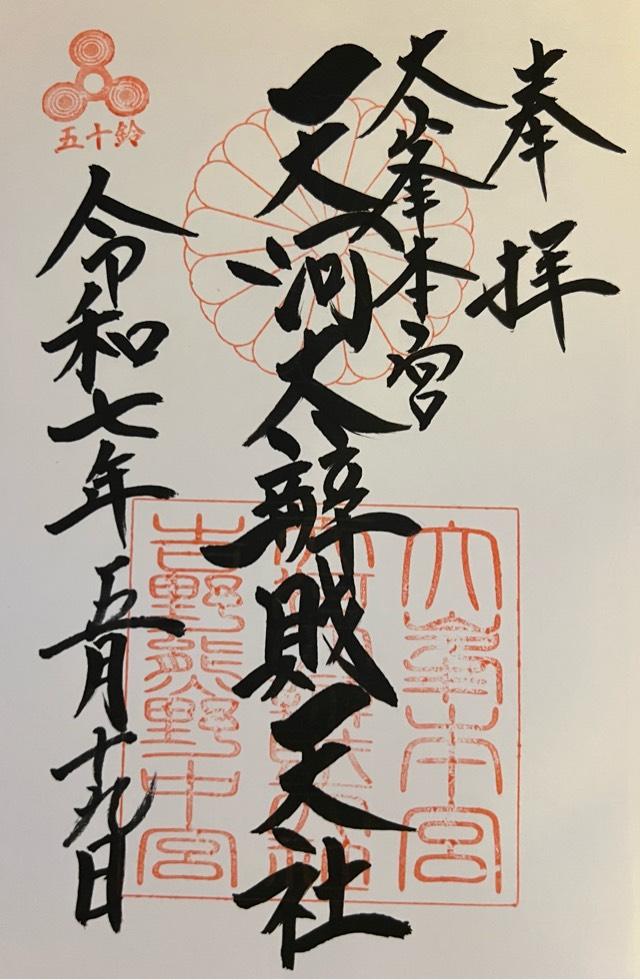 奉拝
大峯本宮
天河大辨財天社
令和七年五月十九日
五十鈴
大峯本宮
吉野熊野中宮